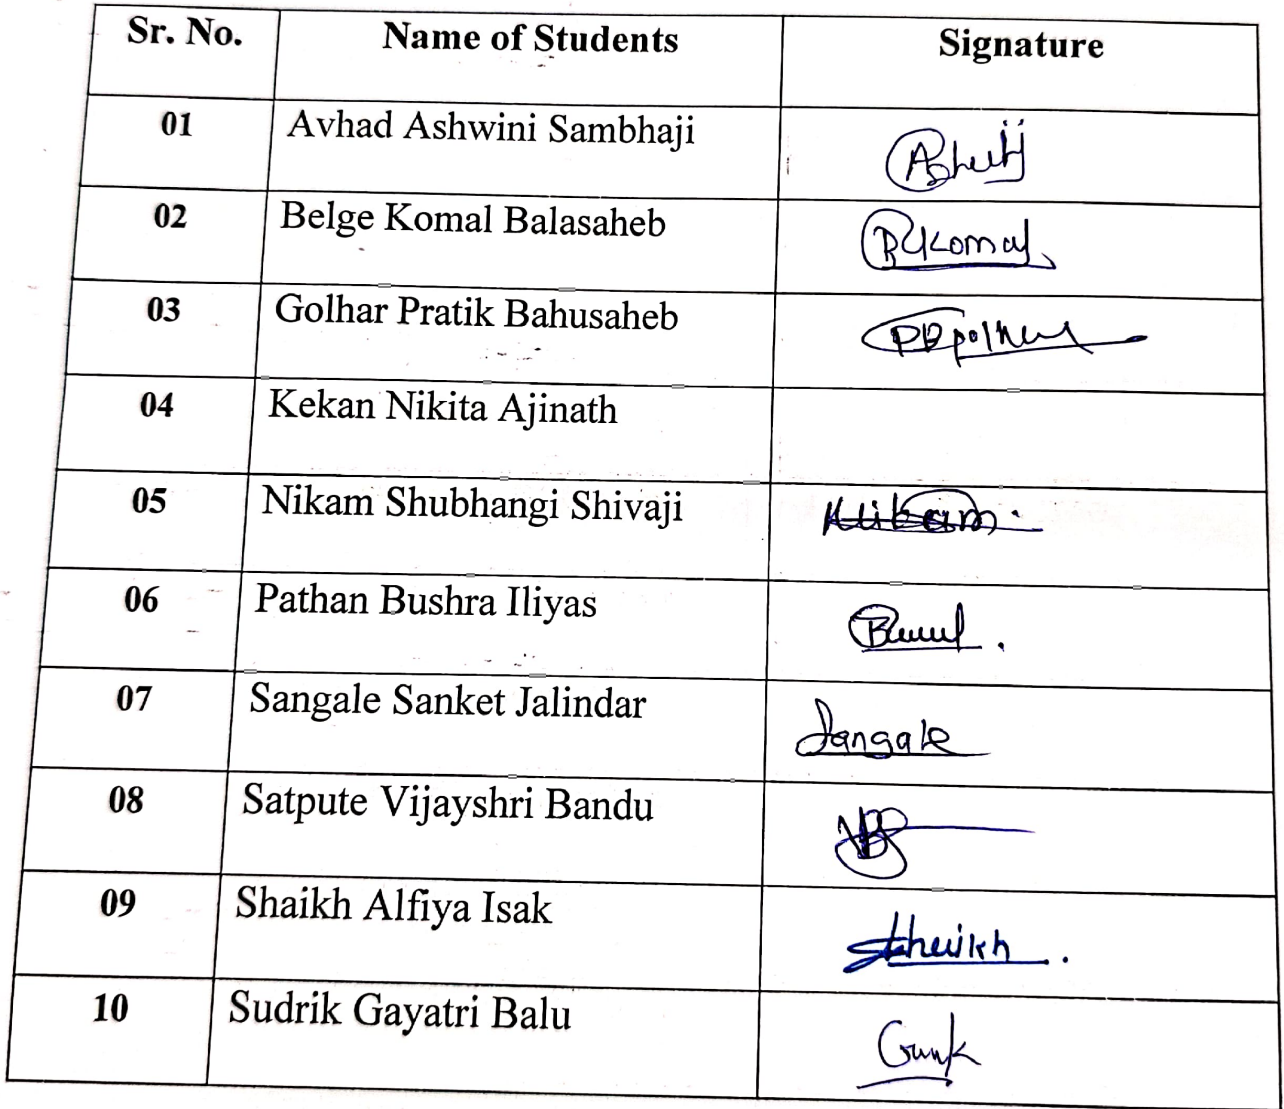 Sr. No. Name of Students Signature
01 Avhad Ashwini Sambhaji
02 Belge Komal Balasaheb BKomal
03 Golhar Pratik Bahusaheb
04 Kekan Nikita Ajinath
05 Nikam Shubhangi Shivaji
06 Pathan Bushra Iliyas
07 Sangale Sanket Jalindar Sangale
08 Satpute Vijayshri Bandu
09 Shaikh Alfiya Isak
10 Sudrik Gayatri Balu